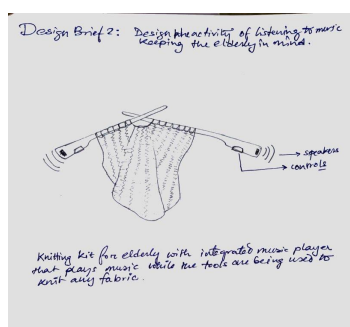 Design Brief 2: Design the activity of listening to music
keeping the elderly in mind.
speakers
controls
Knitting kit for elderly with integrated music player
that plays music while the tools are being used to
knit any fabric.